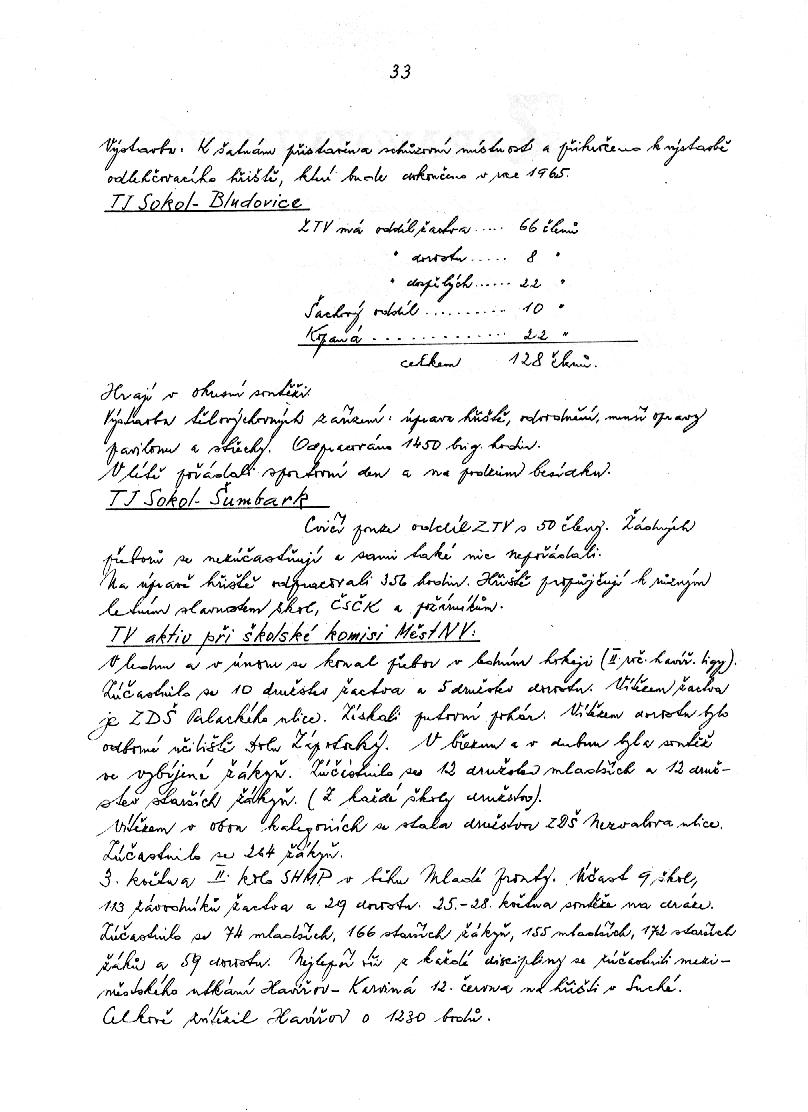 33
Výstavba: K šatnám přistavěna schůzovní místnost a přikročeno k výstavbě
odlehčovacího hřiště, které bude dokončeno v roce 1965.
TJ Sokol - Bludovice
ZTV má oddíl žactva ..... 66 členů
" dorostu ..... 8 "
" dospělých ...... 22 "
Šachový oddíl .......... 10 "
Kopaná ............. 22 "
celkem 128 členů.
Hrají v okresní soutěži.
Výstavba tělovýchovných zařízení: úprava hřiště, odvodnění, menší opravy
pavilonu a střechy. Odpracováno 1450 brig. hodin.
V létě pořádali sportovní den a na podzim besídku.
TJ Sokol - Šumbark
Cvičí pouze oddíl ZTV s 50 členy. Žádných
přeborů se nezúčastňují a sami také nic nepořádali.
Na úpravě hřiště odpracovali 356 hodin. Hřiště propůjčují k různým
letním slavnostem škol, ČSČK a požárníkům.
TV aktiv při školské komisi MěstNV:
V lednu a v únoru se konal přebor v ledním hokeji (II. roč. havíř. ligy).
Zúčastnilo se 10 družstev žactva a 5 družstev dorostu. Vítězem žactva
je ZDŠ Palackého ulice. Získali putovní pohár. Vítězem dorostu bylo
odborné učiliště Dolu Zápotocký. V březnu a v dubnu byla soutěž
ve vybíjené žákyň. Zúčastnilo se 12 družstev mladších a 12 druž-
stev starších žákyň. (Z každé školy družstvo).
Vítězem v obou kategoriích se stala družstva ZDŠ Nezvalova ulice.
Zúčastnilo se 264 žákyň.
3. května II. kolo SHMP v běhu Mladé fronty. Účast 9 škol,
113 závodníků žactva a 29 dorostu. 25.-28. května soutěže na dráze.
Zúčastnilo se 74 mladších, 166 starších žákyň, 155 mladších, 172 starších
žáků a 59 dorostu. Nejlepší z každé disciplíny se zúčastnili mezi-
městského utkání Havířov - Karviná 12. června na hřišti v Suché.
Celkově zvítězil Havířov o 1230 bodů.